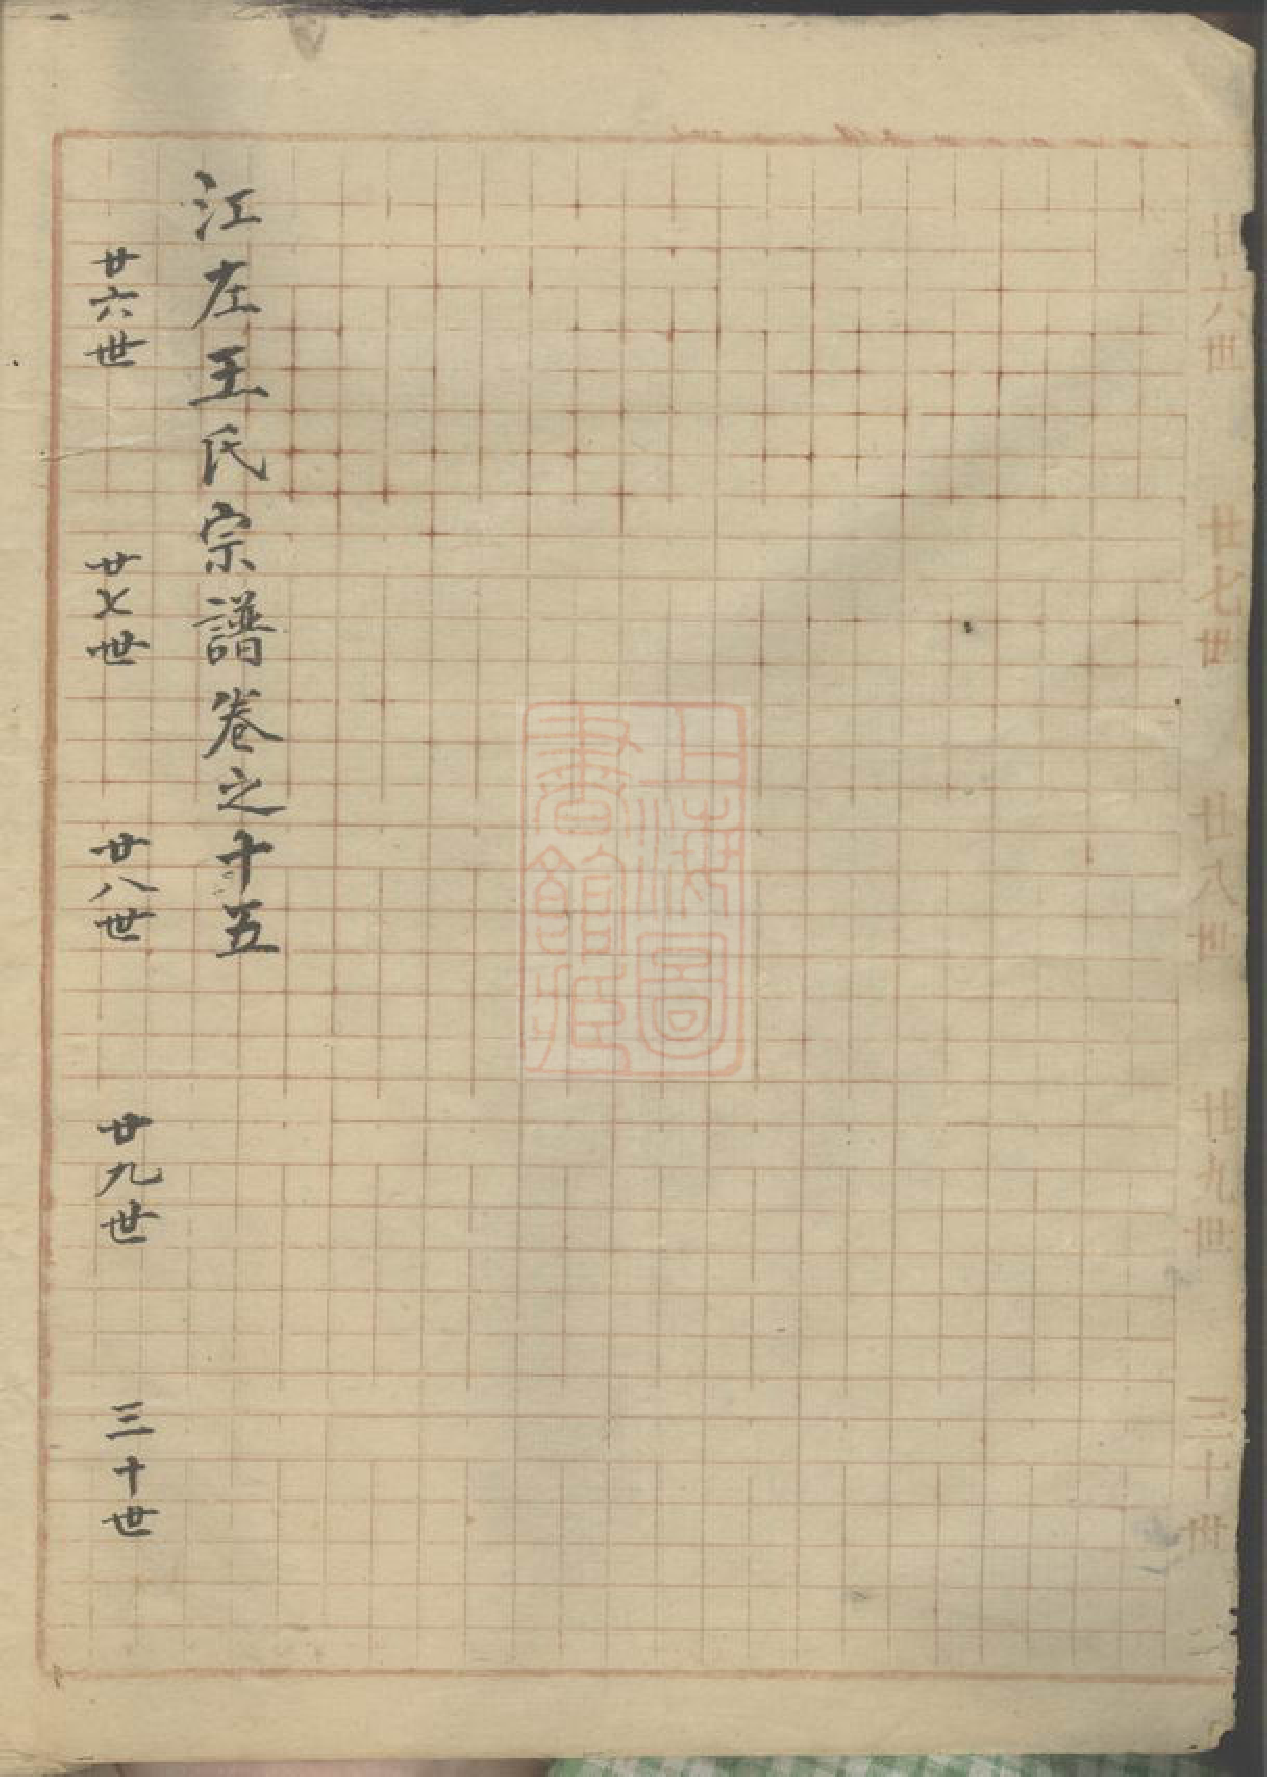 廿六世
廿七世
廿八世
廿九世
三十世
上海圖
書館藏
江左王氏宗譜卷之十五
廿六世
廿七世
廿八世
廿九世
三十世